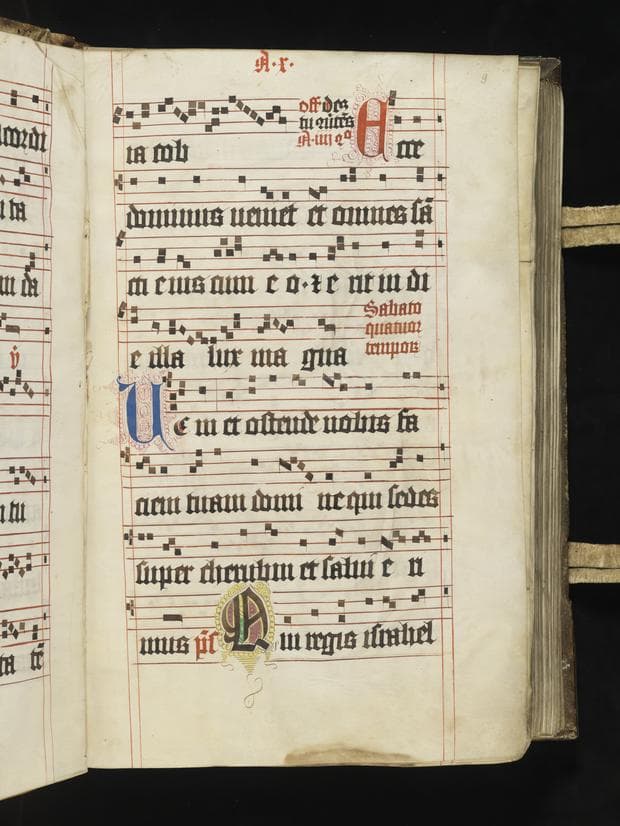 A·x·
9
ia cob E cce
dominus veniet et omnes sã
cti eius cum e o·⁊ e rit in di
e illa lux ma gna
Sabato
quatuor
tempor
Ue ni et ostende nobis fa
ciem tuam domi ne qui sedes
super cherubin et salui e ri
mus p̃s Qui regis israhel